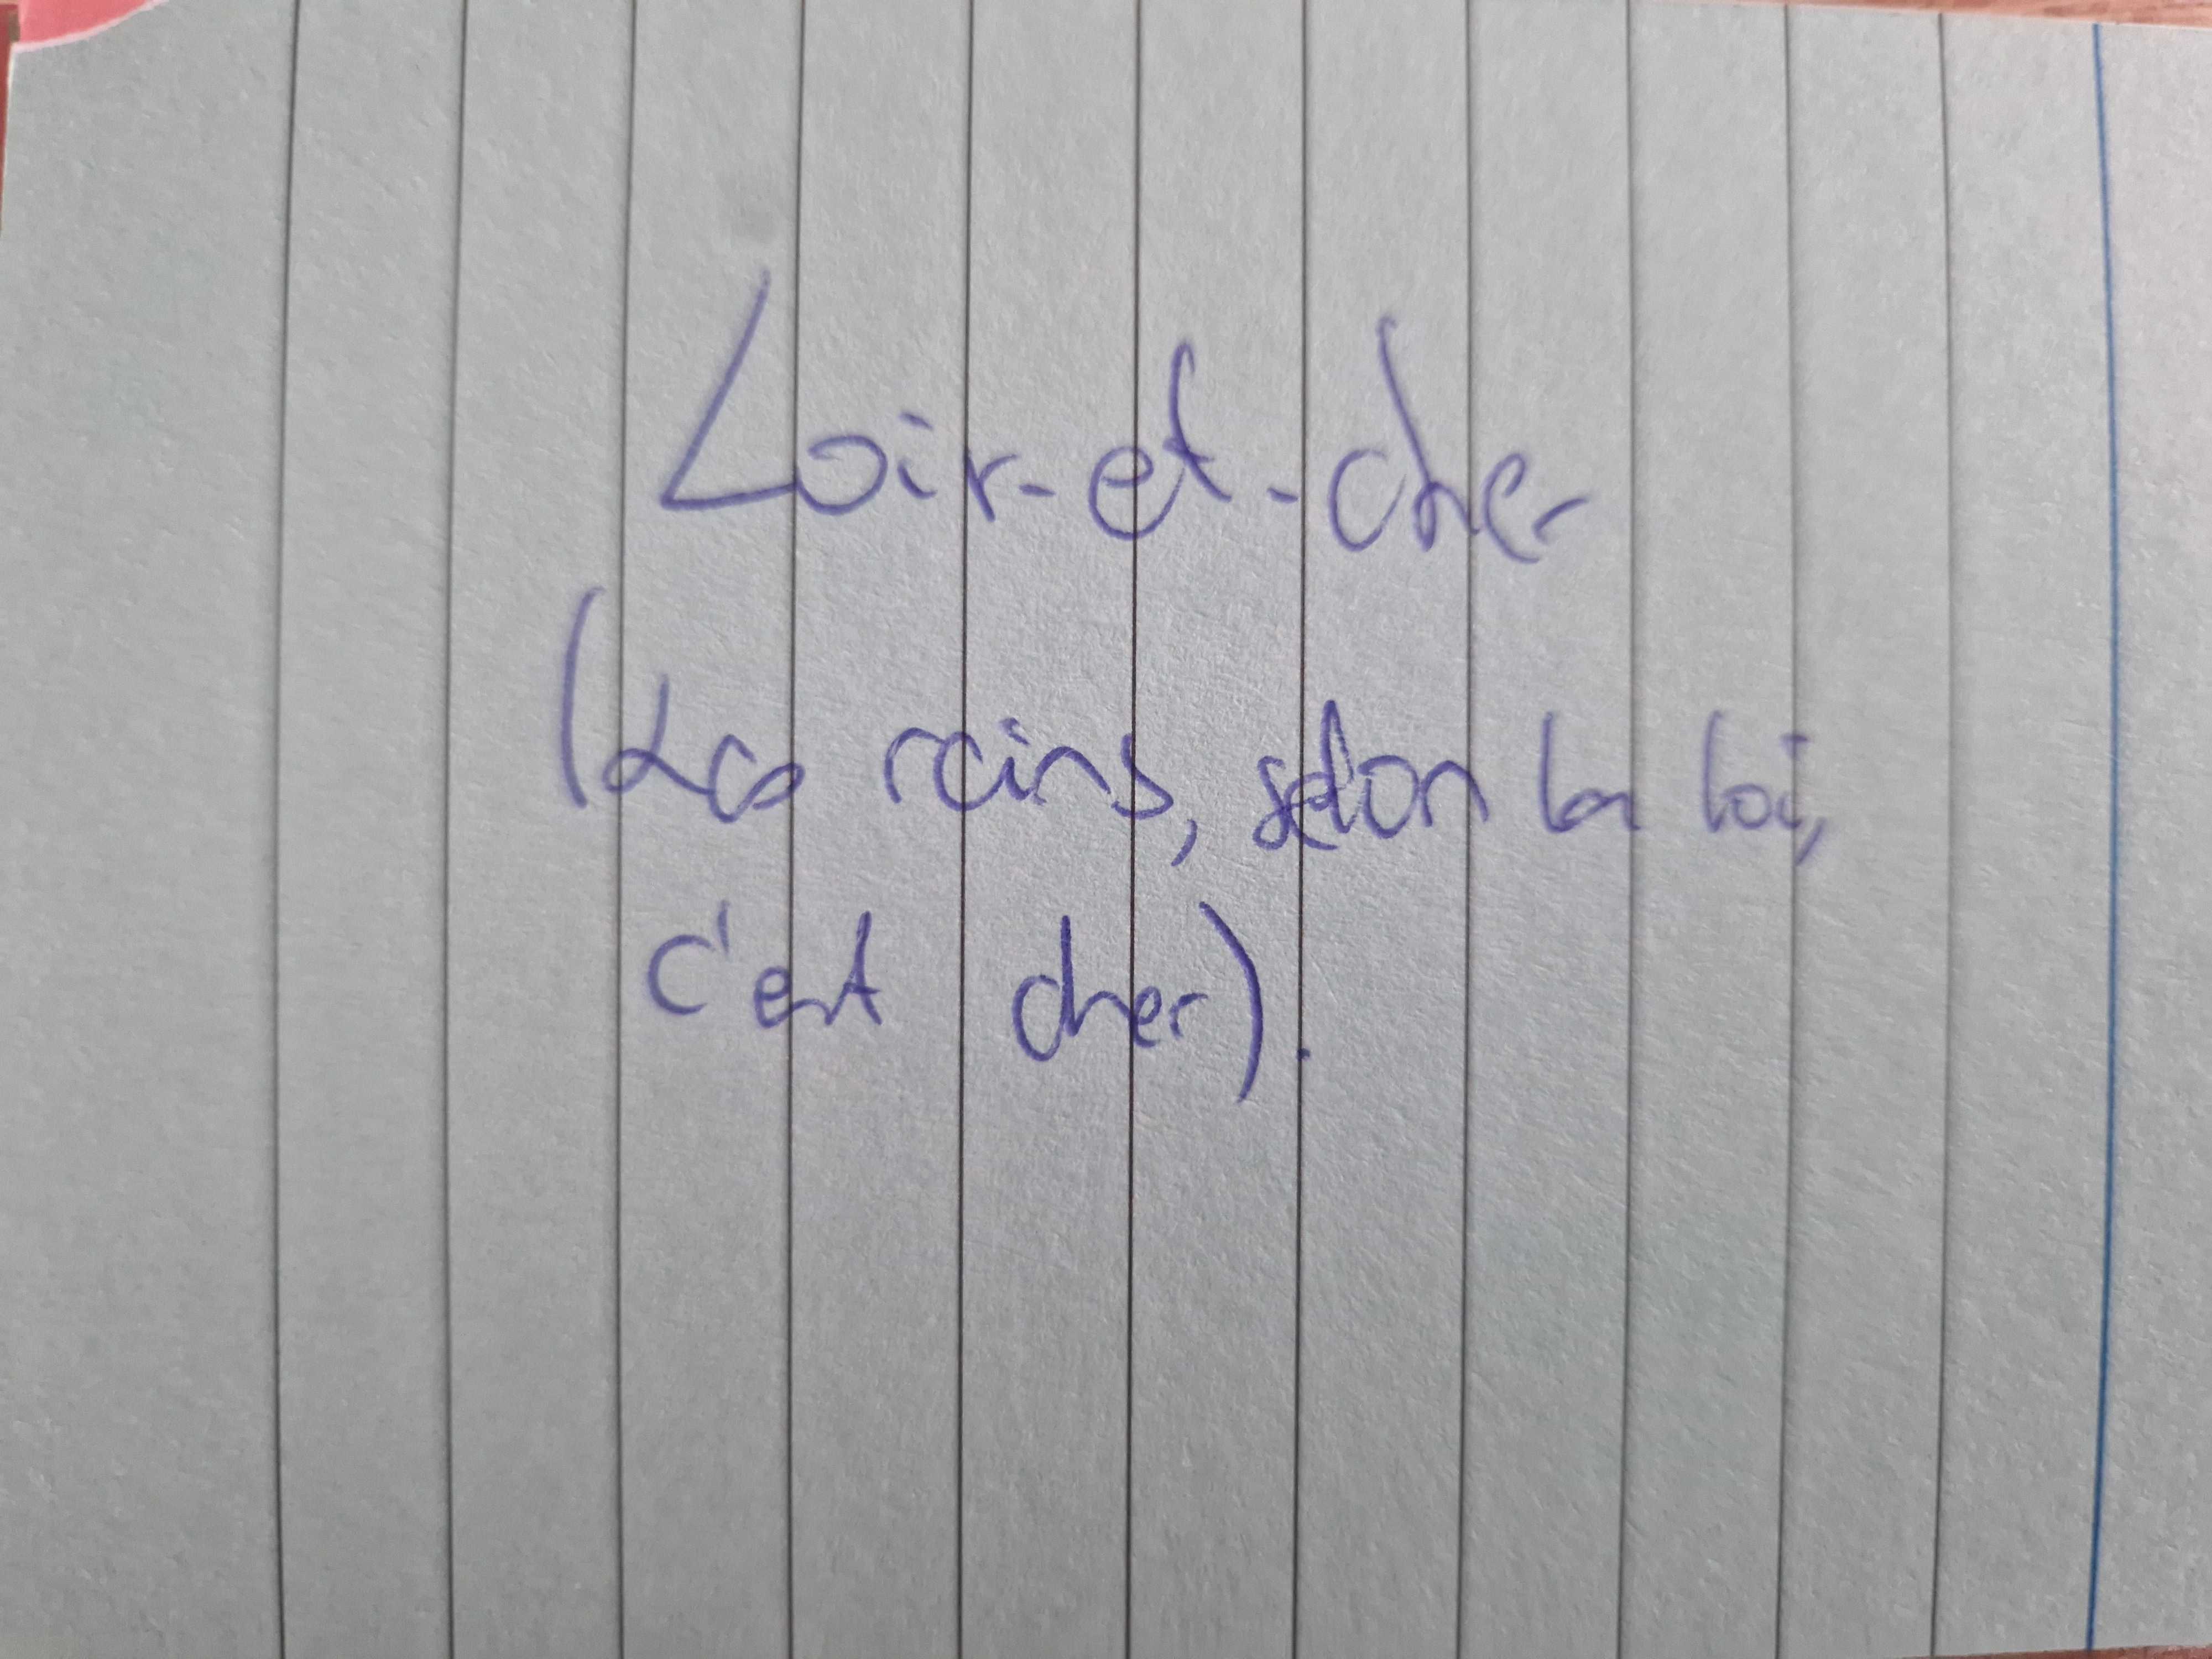 Loir-et-cher
(Les reins, selon la loi,
c'est cher).